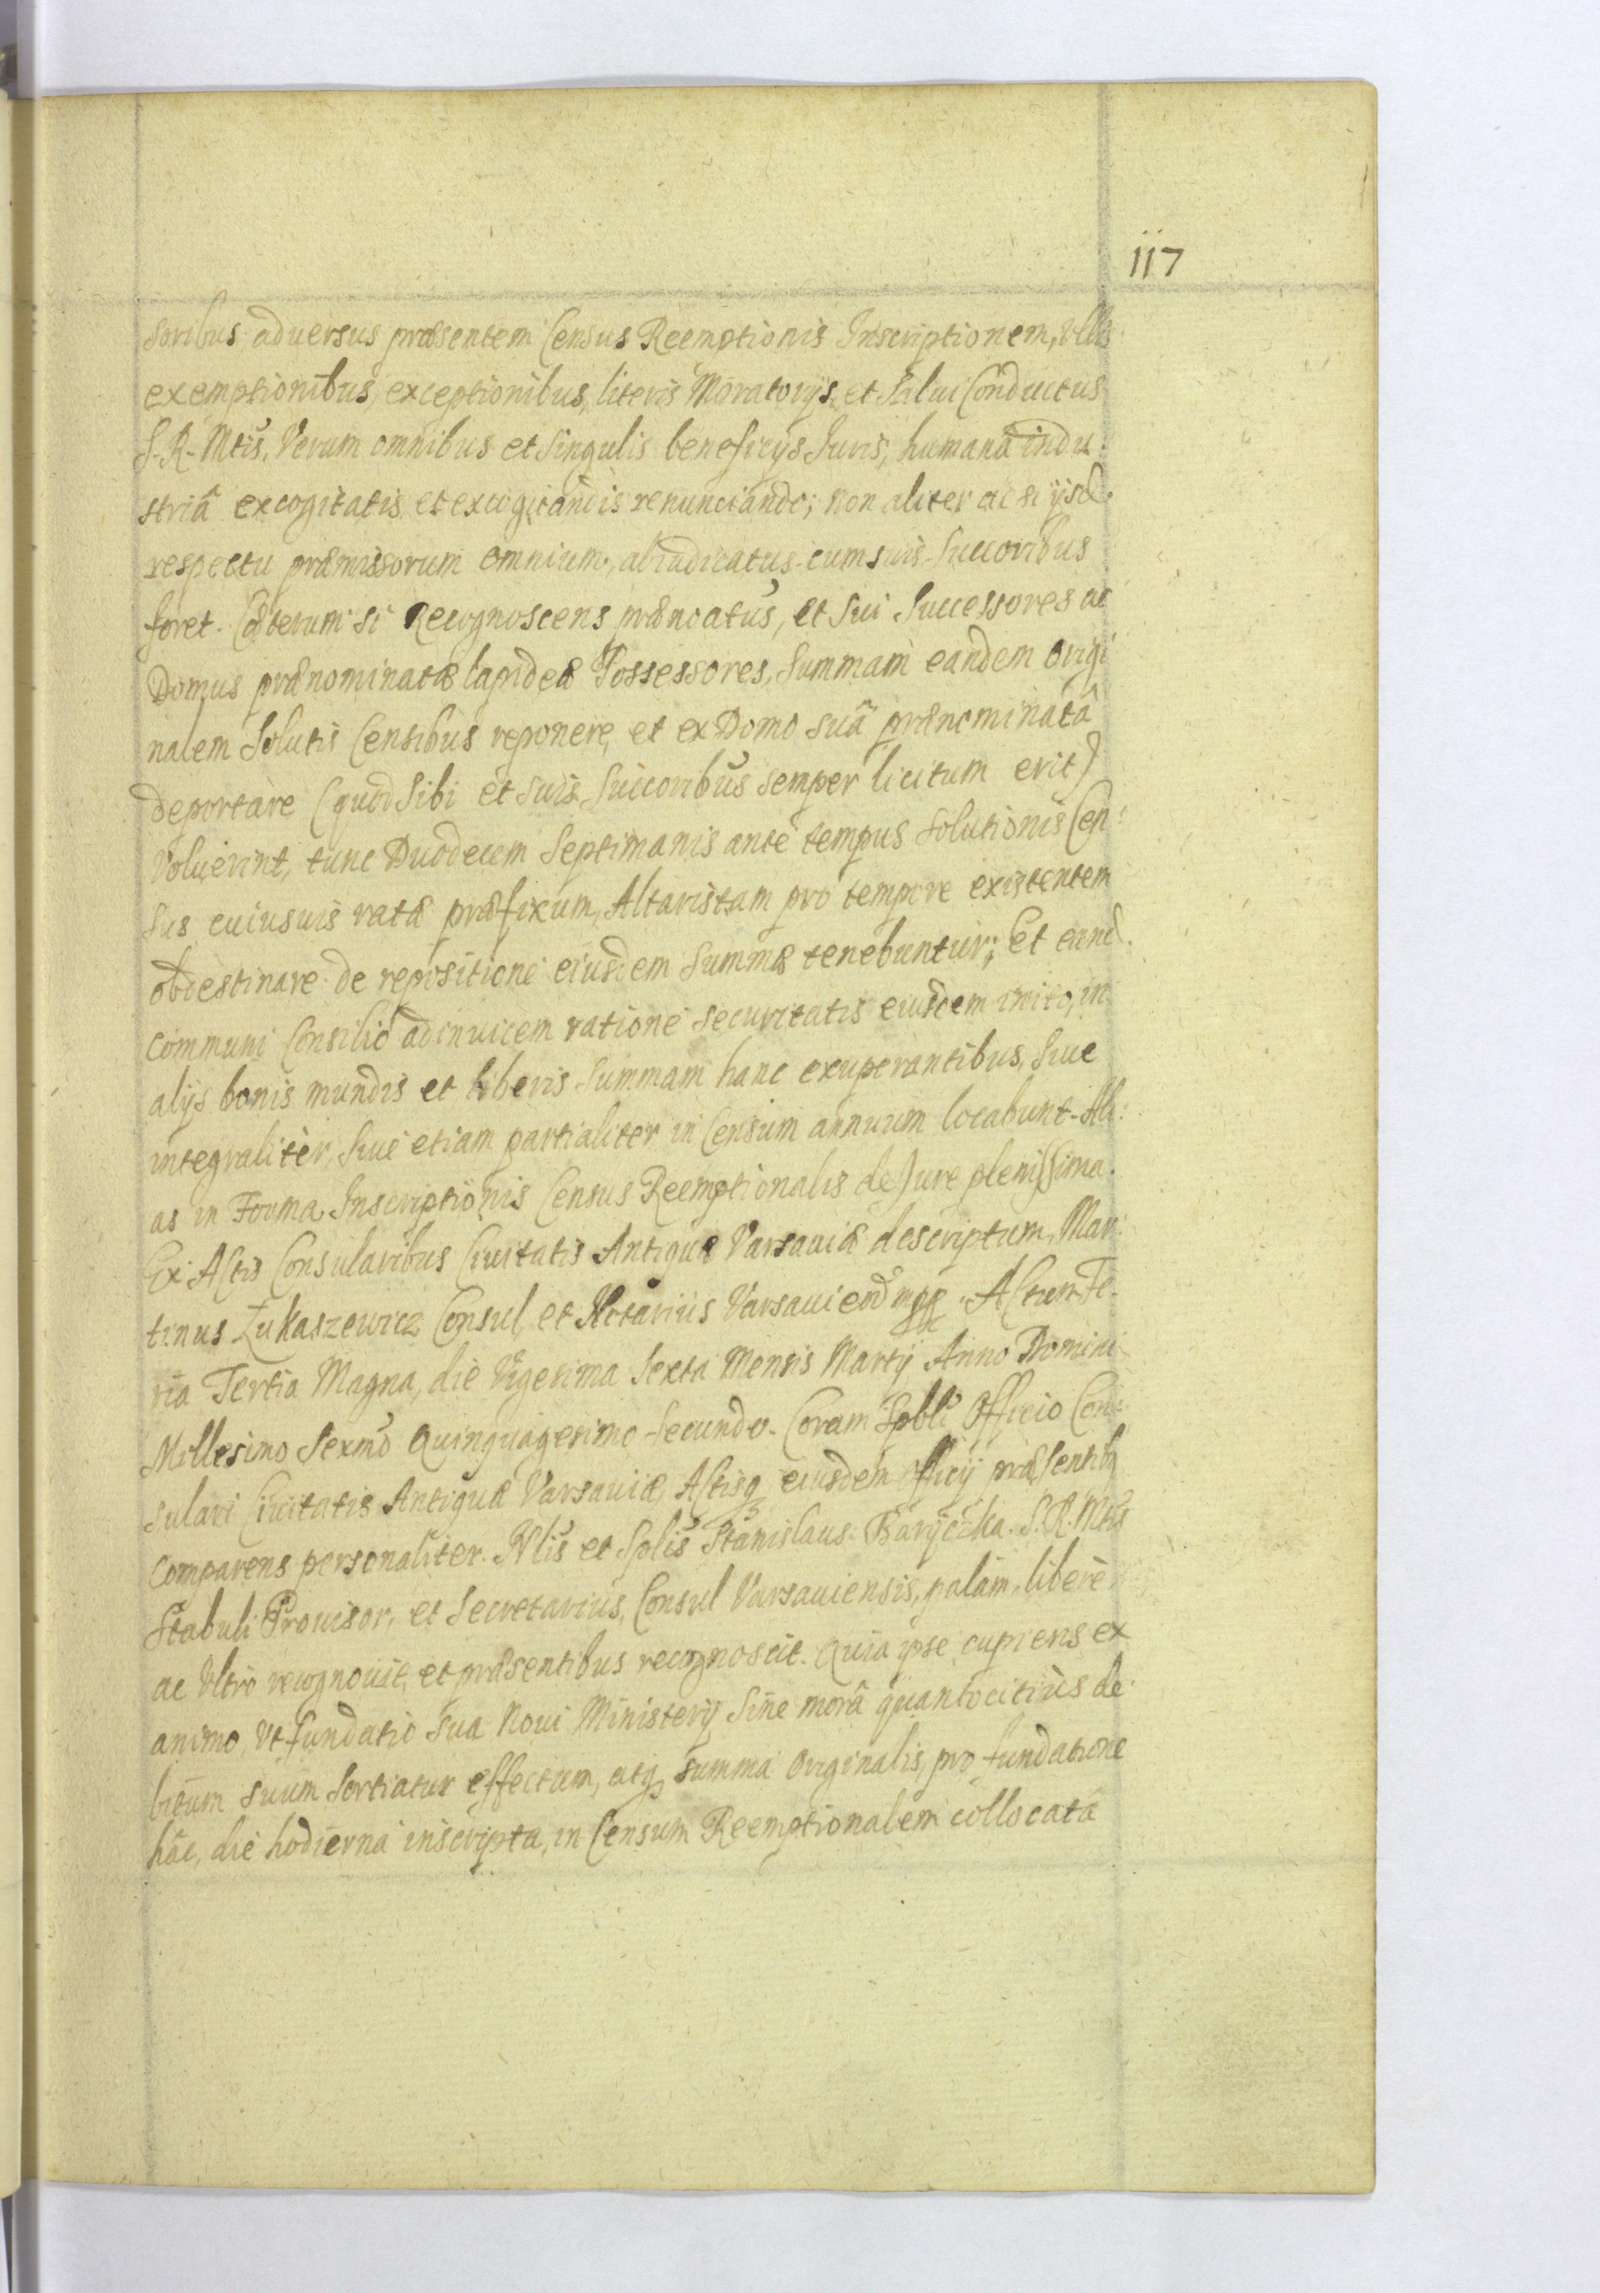 117
soribus adversus præsentem Census Reemptionis Inscriptionem, ullis
exemptionibus, exceptionibus, literis Moratorijs, et Salui Conductus
S. R. Mtis, Verum omnibus et singulis beneficijs Juris, humanâ indu
striâ excogitatis et excogitandis renunciando; non aliter ac si ijsd.
respectu præmissorum omnium, abiudicatus cum suis Succoribus
foret. Cæterum si Recognoscens prænoatus, et sui Successores ac
Domus prænominatæ lapideæ Possessores, Summam eandem origi
nalem Solutis Censibus reponere, et ex Domo suâ prænominatâ
deportare (quod sibi et suis Succoribus semper licitum erit)
Voluerint, tunc Duodecem Septimanis ante tempus Solutionis Cen:
sus cuiusuis ratæ præfixum, Altaristam pro tempore existentem
obdestinare de repositione eiusdem Summæ tenebuntur; Et eand.
communi Consilio adinuicem ratione securitatis eiusdem inito, in
alijs bonis mundis et liberis Summam hanc exuperantibus, Siue
integraliter, Siue etiam partialiter in Censum annuum locabunt. Ali:
as in Forma Inscriptionis Census Reemptionalis de Jure plenissima.
Ex Actis Consularibus Ciuitatis Antiquæ Varsauiæ descriptum, Mar:
tinus Łukaszewicz Consul et Notarius Varsauien mpp. Actum Fe-
ria Tertia Magna, die Vigesima Sexta Mensis Martij Anno Domini
Millesimo Sexmo Quinquagesimo Secundo. Coram Spbli Officio Con:
sulari Ciuitatis Antiquæ Varsauiæ, Actisq eiusdem officij præsentib
comparens personaliter. Nlis et Splis Stanislaus Baryczka. S. R. Mtis
Stabuli Prouisor, et Secretarius, Consul Varsauiensis, palàm, liberè
ac Vltrò recognouit, et præsentibus recognoscit. Quia ipse cupiens ex
animo, Vt fundatio sua Noui Ministerij Sine morâ quantocitiùs de
bitum suum Sortiatur effectum, atq summa Originalis, pro fundatione
hâc, die hodierna inscripta, in Censum Reemptionalem collocata